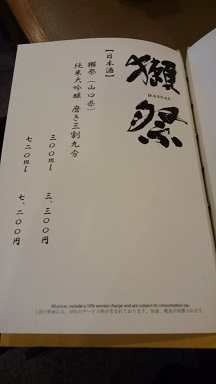 獺祭
DASSAI
【日本酒】
獺祭(山口県)
純米大吟醸 磨き三割九分
三〇〇ml 三、三〇〇円
七二〇ml 七、二〇〇円
All prices include a 10% service charge and are subject to consumption tax.